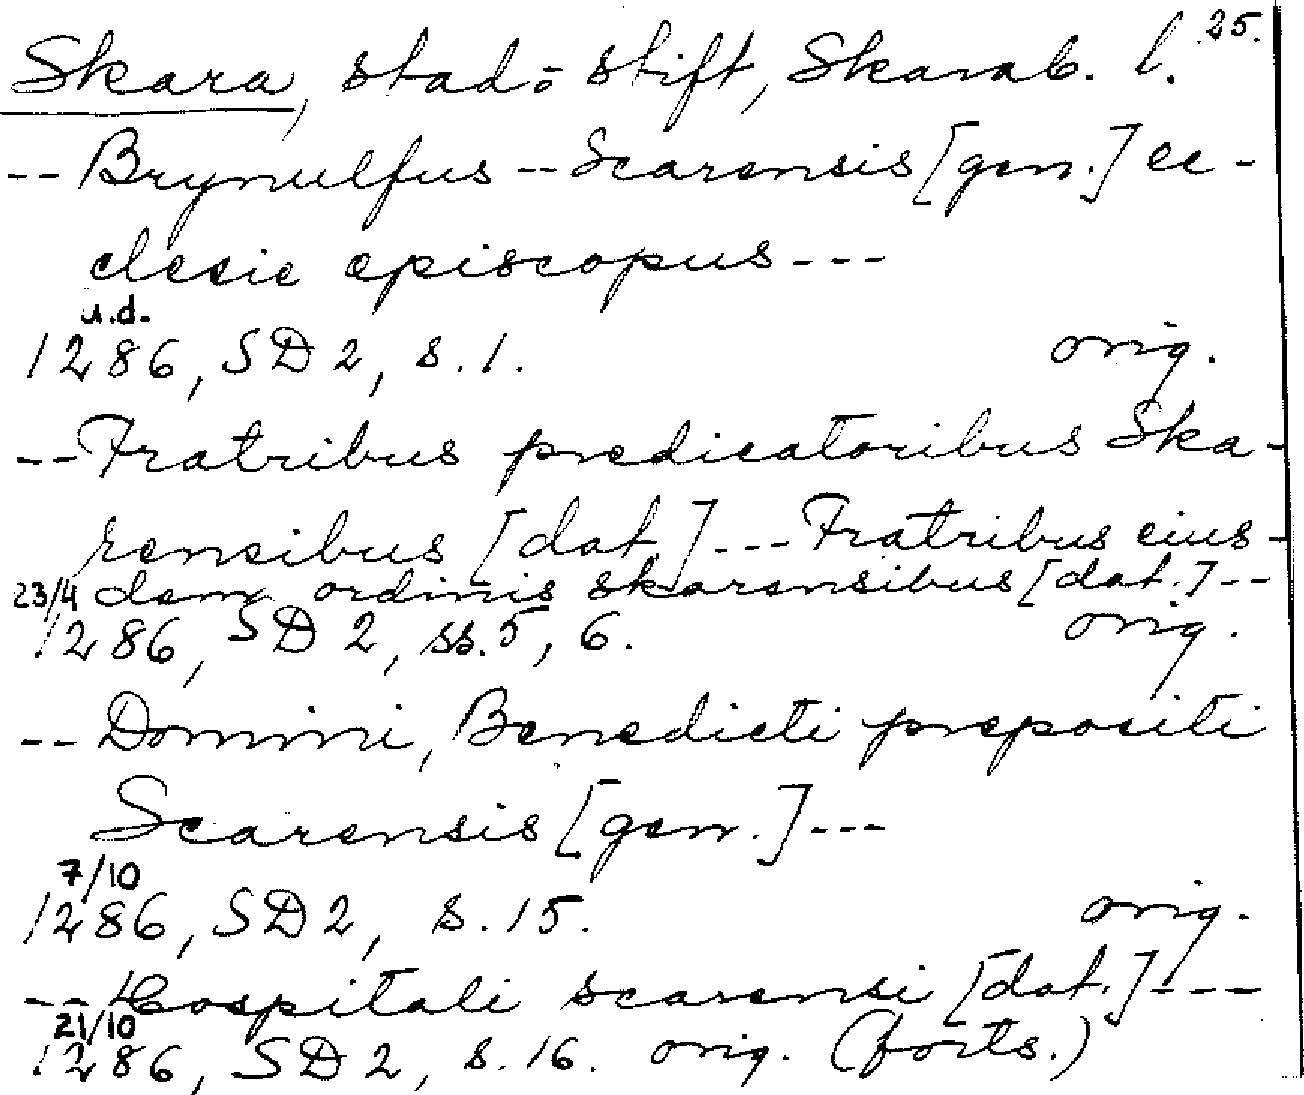 25.
Skara, stad o stift, Skarab. l.
-- Brynulfus -- Scarensis [gen.] ec-
clesie episcopus ---
u.d.
1286, SD 2, s. 1. orig.
-- Fratribus predicatoribus Ska-
rensibus [dat.] --- Fratribus eius-
23/4 dem ordinis skarensibus [dat.] --
1286, SD 2, ss. 5, 6. orig.
-- Domini, Benedicti prepositi
Scarensis [gen.] ---
7/10
1286, SD 2, s. 15. orig.
-- Hospitali scarensi [dat.] ---
21/10
1286, SD 2, s. 16. orig. (forts.)